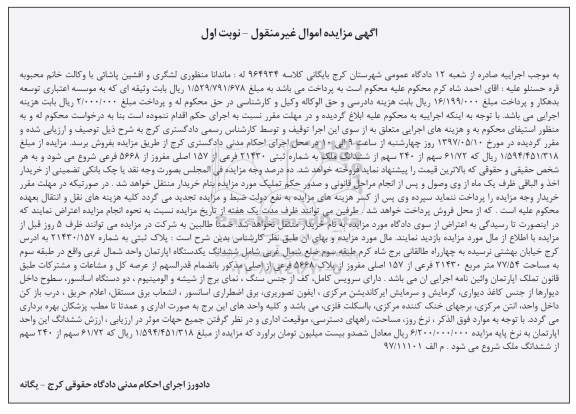 آگهی مزایده اموال غیرمنقول – نوبت اول
به موجب اجراییه صادره از شعبه ۱۲ دادگاه عمومی شهرستان کرج بایگانی کلاسه ۹۶۴۹۳۴ له : ماندانا منظوری لشگری و افشین پاشائی با وکالت خانم محبوبه
قره حسنلو علیه : آقای احمد شاه کرم محکوم علیه محکوم است به پرداخت می باشد به مبلغ ۱/۵۲۹/۷۹۱/۶۷۸ ریال بابت وثیقه ای که به موسسه اعتباری توسعه
بدهکار و پرداخت مبلغ ۱۶/۱۹۹/۰۰۰ ریال بابت هزینه دادرسی و حق الوکاله وکیل و کارشناسی در حق محکوم له و پرداخت مبلغ ۲/۰۰۰/۰۰۰ ریال بابت هزینه
اجرایی می باشد. با توجه به اینکه اجراییه به محکوم علیه ابلاغ گردیده و در مهلت مقرر نسبت به اجرای حکم اقدام ننموده است بنا به درخواست محکوم له و به
منظور استیفای محکوم به و هزینه های اجرایی متعلق به از سوی این اجرا توقیف و توسط کارشناس رسمی دادگستری کرج به شرح ذیل توصیف و ارزیابی شده و
مقرر گردیده در مورخ ۱۳۹۷/۰۵/۱۰ روز چهارشنبه از ساعت ۹ الی ۱۰ در محل اجرای احکام مدنی دادگستری کرج از طریق مزایده بفروش برسد. مزایده از مبلغ
۱/۵۹۴/۴۵۱/۳۱۸ ریال که ۶۱/۷۲ سهم از ۲۴۰ سهم از ششدانگ ملک به شماره ثبتی ۲۱۴۳۰ فرعی از ۱۵۷ اصلی مفروز از ۵۶۶۸ فرعی شروع می شود و به هر
شخص حقیقی و حقوقی که بالاترین قیمت را پیشنهاد نماید فروخته خواهد شد. ده درصد وجه مزایده فی المجلس بصورت وجه نقد یا چک بانکی تضمینی از خریدار
اخذ و الباقی ظرف یک ماه از وی وصول و پس از انجام مراحل قانونی و صدور حکم تملیک مورد مزایده بنام خریدار منتقل خواهد شد . در صورتیکه در مهلت مقرر
خریدار وجه مزایده را پرداخت ننماید سپرده وی پس از کسر هزینه های مزایده به نفع دولت ضبط و مزایده تجدید می گردد کلیه هزینه های نقل و انتقال بعهده
محکوم علیه است . که از محل فروش پرداخت خواهد شد . طرفین می توانند ظرف مدت یک هفته از تاریخ مزایده نسبت به نحوه انجام مزایده اعتراض نمایند که
در اینصورت تا رسیدگی به اعتراض از سوی دادگاه مورد مزایده به نام خریدار منتقل نخواهد شد. ضمنا طالبین به شرکت در مزایده می توانند ظرف ۵ روز قبل از
مزایده با اطلاع از مال مورد مزایده بازدید نمایند. مال مورد مزایده و بهای آن طبق نظر کارشناس بدین شرح است : پلاک ثبتی به شماره ۲۱۴۳۰/۱۵۷ به آدرس
کرج خیابان بهشتی نرسیده به چهارراه طالقانی برج شاه کرم طبقه سوم ضلع شمال غربی شامل ششدانگ یکدستگاه آپارتمان واحد شمال غربی واقع در طبقه سوم
به مساحت ۷۷/۵۴ متر مربع ۲۱۴۳۰ فرعی از ۱۵۷ اصلی مفروز از پلاک ۵۶۶۸ فرعی از اصلی مذکور بانضمام قدرالسهم از عرصه کل و مشاعات و مشترکات طبق
قانون تملک آپارتمان وآئین نامه اجرایی آن می باشد . دارای سرویس کامل، کف از جنس سنگ ، نمای برج از شیشه و آلومینیوم ، دو دستگاه آسانسور، سطوح داخل
دیوارها از جنس کاغذ دیواری، گرمایش و سرمایش ایرکاندیشن مرکزی ، آیفون تصویری، برق اضطراری آسانسور ، انشعاب برق مستقل، اعلام حریق ، درب باز کن
داخل واحد، آنتن مرکزی، برجهای خنک کننده مرکزی، بااسکلت فلزی، می باشد و کلیه واحد های این برج به صورت اداری و عمدتا مطب پزشکان بهره برداری
می گردد. با توجه به موارد فوق الذکر ، نرخ روز، مساحت، راههای دسترسی، موقعیت اداری و در نظر گرفتن جمیع جهات موثر در ارزیابی ، ارزش ششدانگ این واحد
آپارتمان به نرخ پایه مزایده ۶/۲۰۰/۰۰۰/۰۰۰ ریال معادل ششصدو بیست میلیون تومان برآورد که مزایده از مبلغ ۱/۵۹۴/۴۵۱/۳۱۸ ریال که ۶۱/۷۲ سهم از ۲۴۰ سهم
از ششدانگ ملک شروع می شود . م الف ۹۷/۱۱۱۰۱
دادورز اجرای احکام مدنی دادگاه حقوقی کرج – یگانه